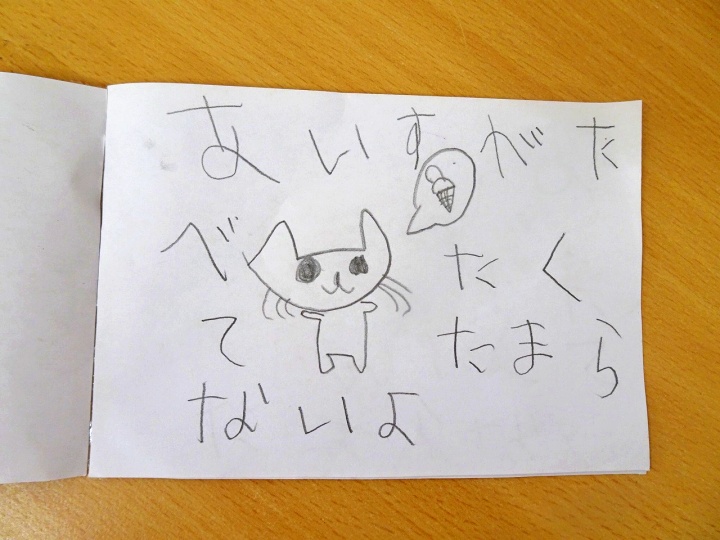 あいすがた
べたく
てたまら
ないよ